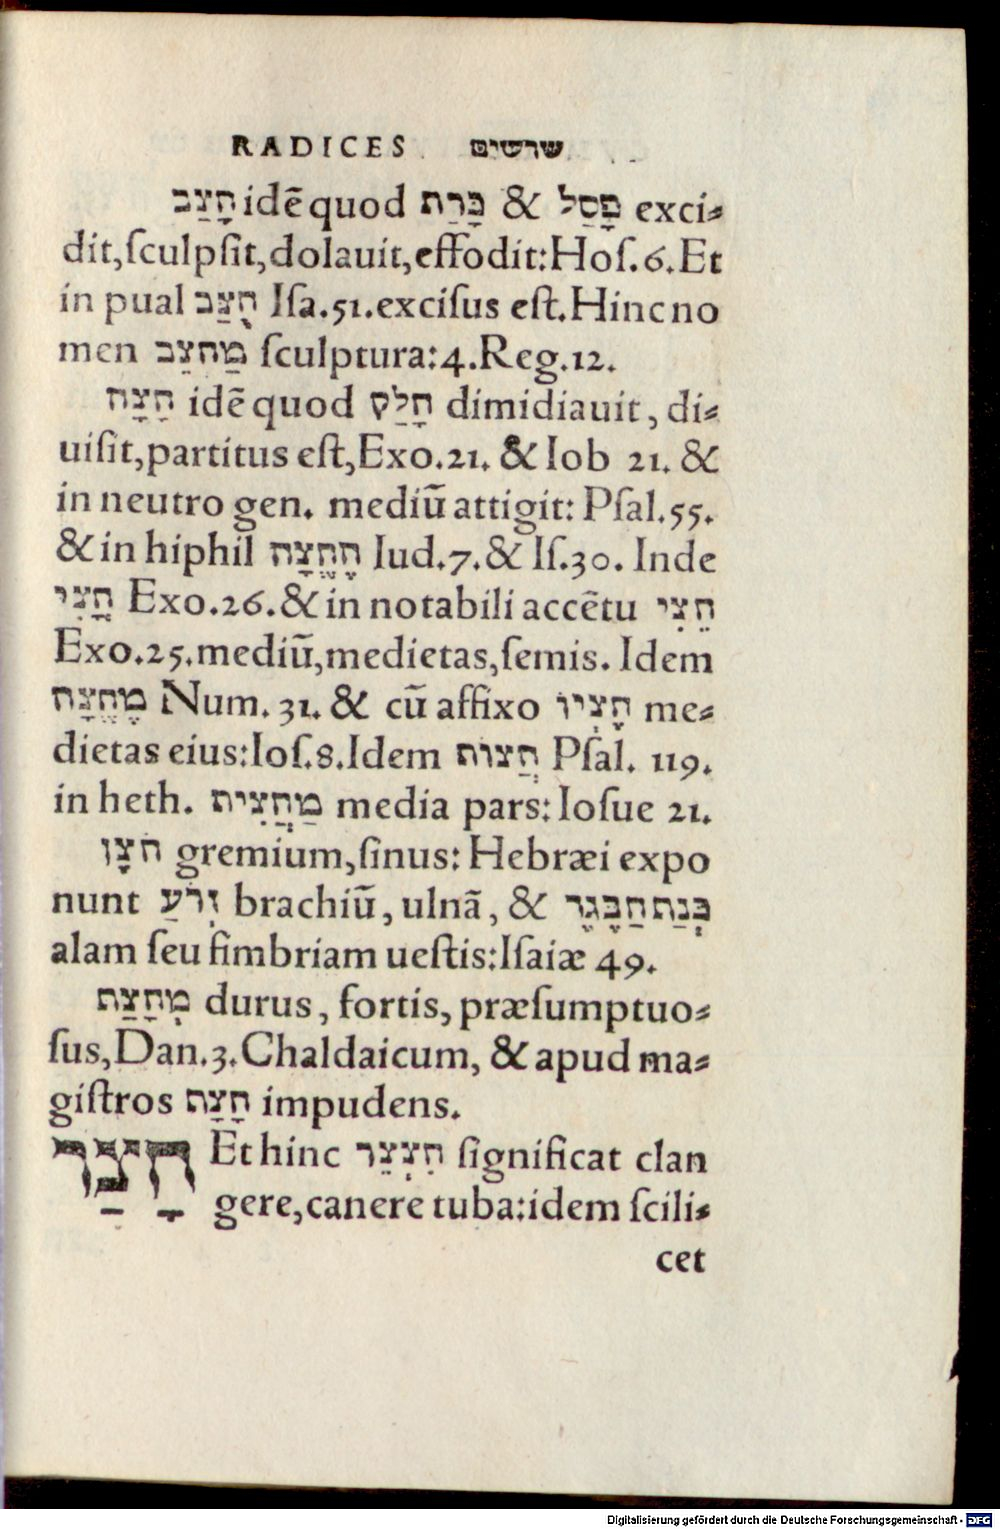 RADICES שרשים
חָצַב idẽ quod כָּרַת & פָּסַל exci⸗
dit, ſculpſit, dolauit, effodit: Hoſ. 6. Et
in pual חֻצַּב Iſa. 51. exciſus eſt. Hinc no
men מַחְצֵב ſculptura: 4. Reg. 12.
חָצָה idẽ quod חָלַק dimidiauit, di⸗
uiſit, partitus eſt, Exo. 21. & Iob 21. &
in neutro gen. mediũ attigit: Pſal. 55.
& in hiphil הֶחֱצָה Iud. 7. & Iſ. 30. Inde
חֲצִי Exo. 26. & in notabili accẽtu חֵצִי
Exo. 25. mediũ, medietas, ſemis. Idem
מֶחֱצָה Num. 31. & cũ affixo חֶצְיוֹ me⸗
dietas eius: Ioſ. 8. Idem חֲצוֹת Pſal. 119.
in heth. מַחֲצִית media pars: Ioſue 21.
חֹצָן gremium, ſinus: Hebræi expo
nunt זְרֹעַ brachiũ, ulnã, & כְּנַת הַבֶּגֶד
alam ſeu fimbriam ueſtis: Iſaiæ 49.
מְחָצַת durus, fortis, præſumptuo⸗
ſus, Dan. 3. Chaldaicum, & apud ma⸗
giſtros חָצָה impudens.
חָצַר Et hinc חִצְצֵר ſignificat clan
gere, canere tuba: idem ſcili⸗
cet
Digitalisierung gefördert durch die Deutsche Forschungsgemeinschaft - DFG